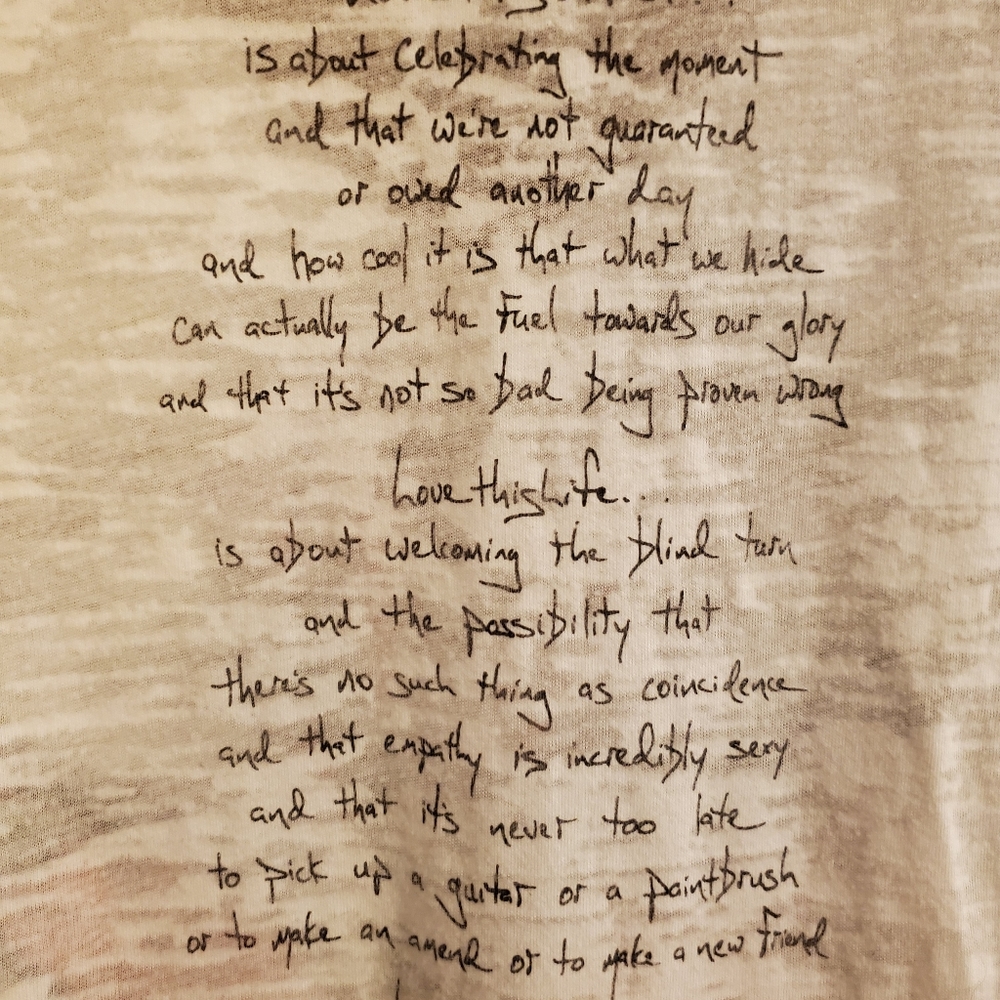 is about celebrating the moment
and that we're not guaranteed
or owed another day
and how cool it is that what we hide
can actually be the fuel towards our glory
and that it's not so bad being proven wrong
LovethisLife...
is about welcoming the blind turn
and the possibility that
there's no such thing as coincidence
and that empathy is incredibly sexy
and that it's never too late
to pick up a guitar or a paintbrush
or to make an amend or to make a new friend